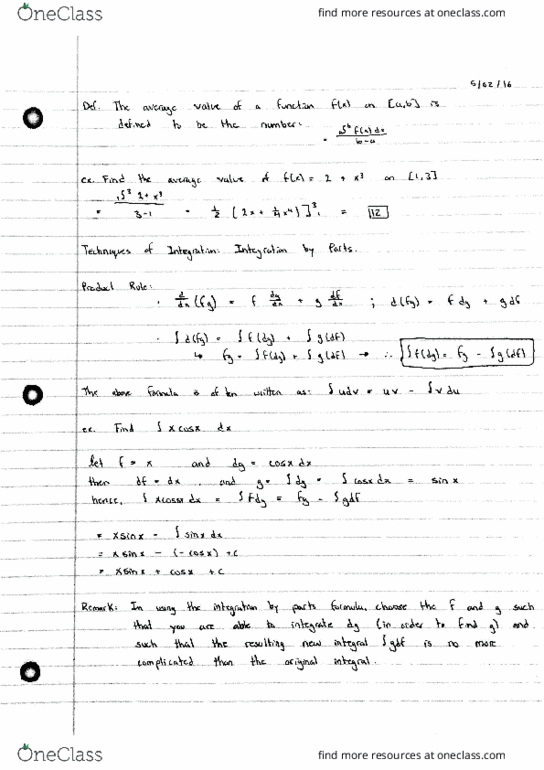 OneClass
find more resources at oneclass.com
5/02/16
Def. The average value of a function f(x) on [a,b] is
defined to be the number:
= a∫b f(x) dx / b-a
ex. Find the average value of f(x) = 2 + x³ on [1,3]
= 1∫3 2 + x³ / 3-1 = 1/2 [2x + 1/4 x⁴)]³₁ = 12
Techniques of Integration: Integration by Parts.
Product Rule:
· d/dx (fg) = f dg/dx + g df/dx ; d(fg) = f dg + g df
· ∫ d(fg) = ∫ f(dg) + ∫ g(df)
↳ fg = ∫ f(dg) + ∫ g(df) → ∴ ∫ f(dg) = fg - ∫ g(df)
The above formula is often written as: ∫ u dv = uv - ∫ v du
ex. Find ∫ x cosx dx
let f = x and dg = cosx dx
then df = dx , and g = ∫ dg = ∫ cosx dx = sin x
hence, ∫ x cosx dx = ∫ f dg = fg - ∫ g df
= x sin x - ∫ sin x dx
= x sin x - (- cos x) + c
= x sin x + cos x + c
Remark: In using the integration by parts formula, choose the f and g such
that you are able to integrate dg (in order to find g) and
such that the resulting new integral ∫ g df is no more
complicated than the original integral.
OneClass
find more resources at oneclass.com